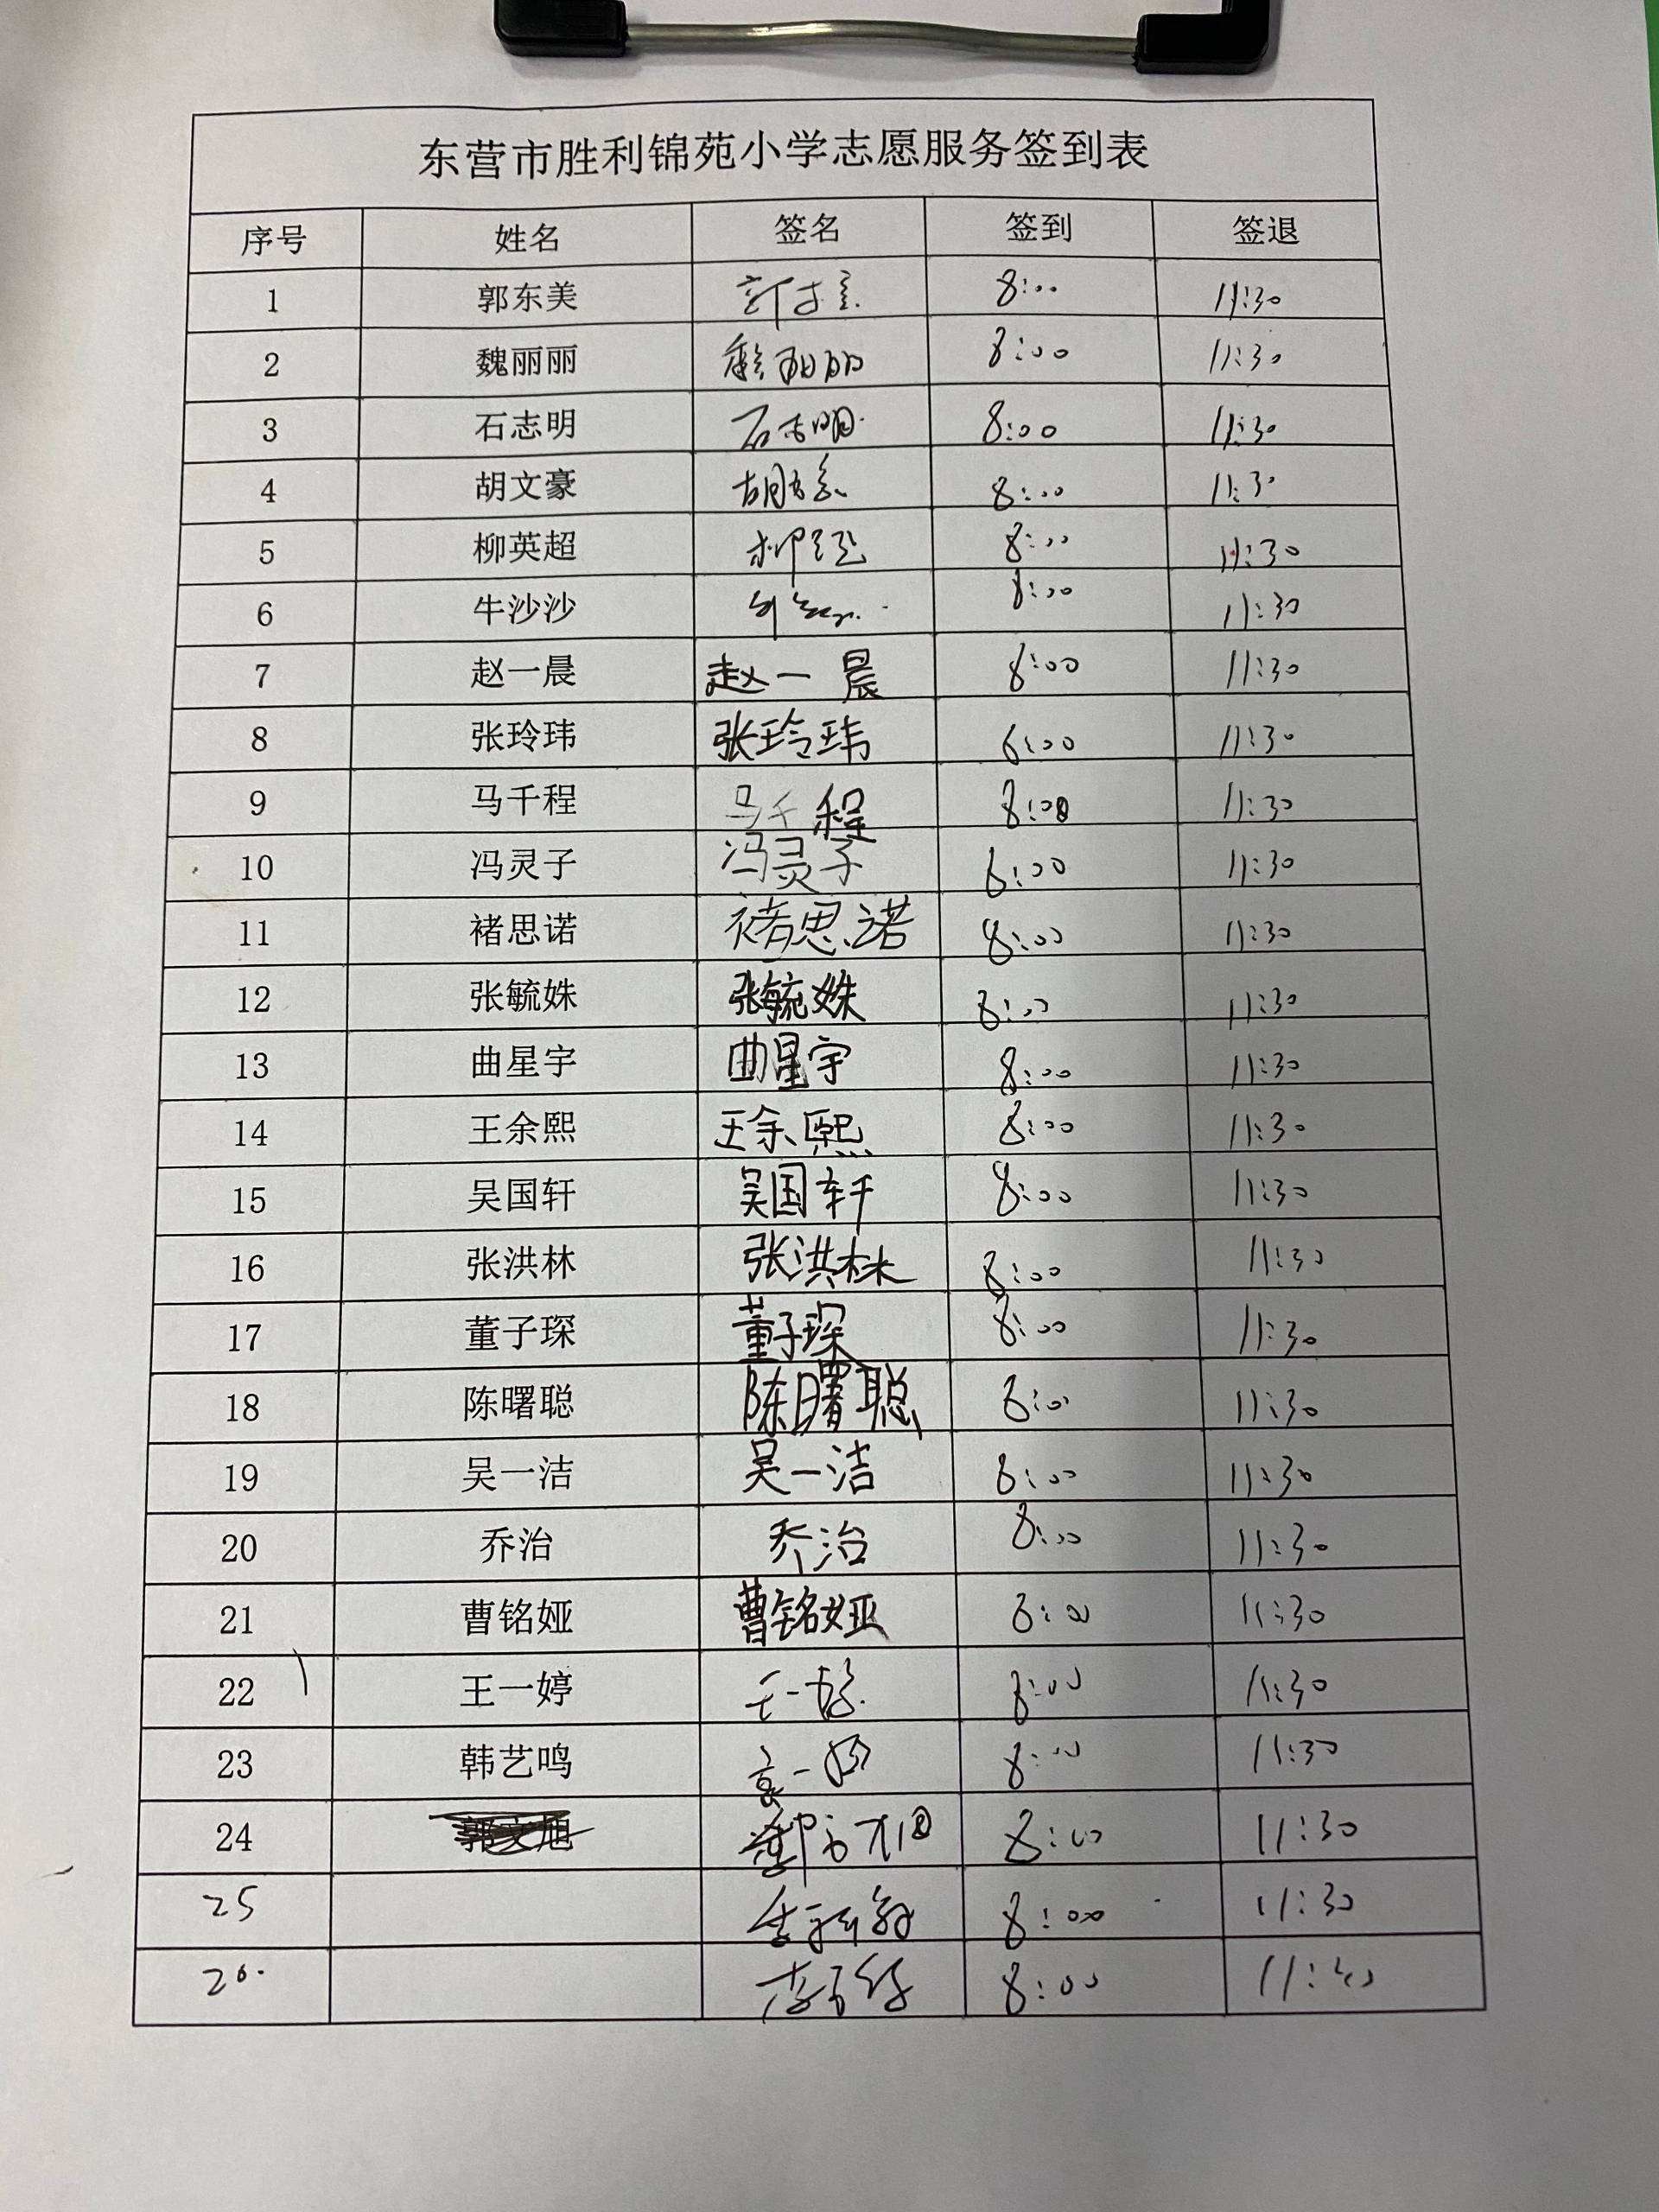 东营市胜利锦苑小学志愿服务签到表
序号 姓名 签名 签到 签退
1 郭东美 8:00 11:30
2 魏丽丽 魏丽丽 8:00 11:30
3 石志明 石志明 8:00 11:30
4 胡文豪 胡文豪 8:00 11:30
5 柳英超 柳英超 8:00 11:30
6 牛沙沙 8:00 11:30
7 赵一晨 赵一晨 8:00 11:30
8 张玲玮 张玲玮 8:00 11:30
9 马千程 马千程 8:00 11:30
10 冯灵子 冯灵子 8:00 11:30
11 褚思诺 褚思诺 8:00 11:30
12 张毓姝 张毓姝 8:00 11:30
13 曲星宇 曲星宇 8:00 11:30
14 王余熙 王余熙 8:00 11:30
15 吴国轩 吴国轩 8:00 11:30
16 张洪林 张洪林 8:00 11:30
17 董子琛 董子琛 8:00 11:30
18 陈曙聪 陈曙聪 8:00 11:30
19 吴一洁 吴一洁 8:00 11:30
20 乔治 乔治 8:00 11:30
21 曹铭娅 曹铭娅 8:00 11:30
22 王一婷 王一婷 8:00 11:30
23 韩艺鸣 8:00 11:30
24 郭文旭 8:00 11:30
25 8:00 11:30
26 8:00